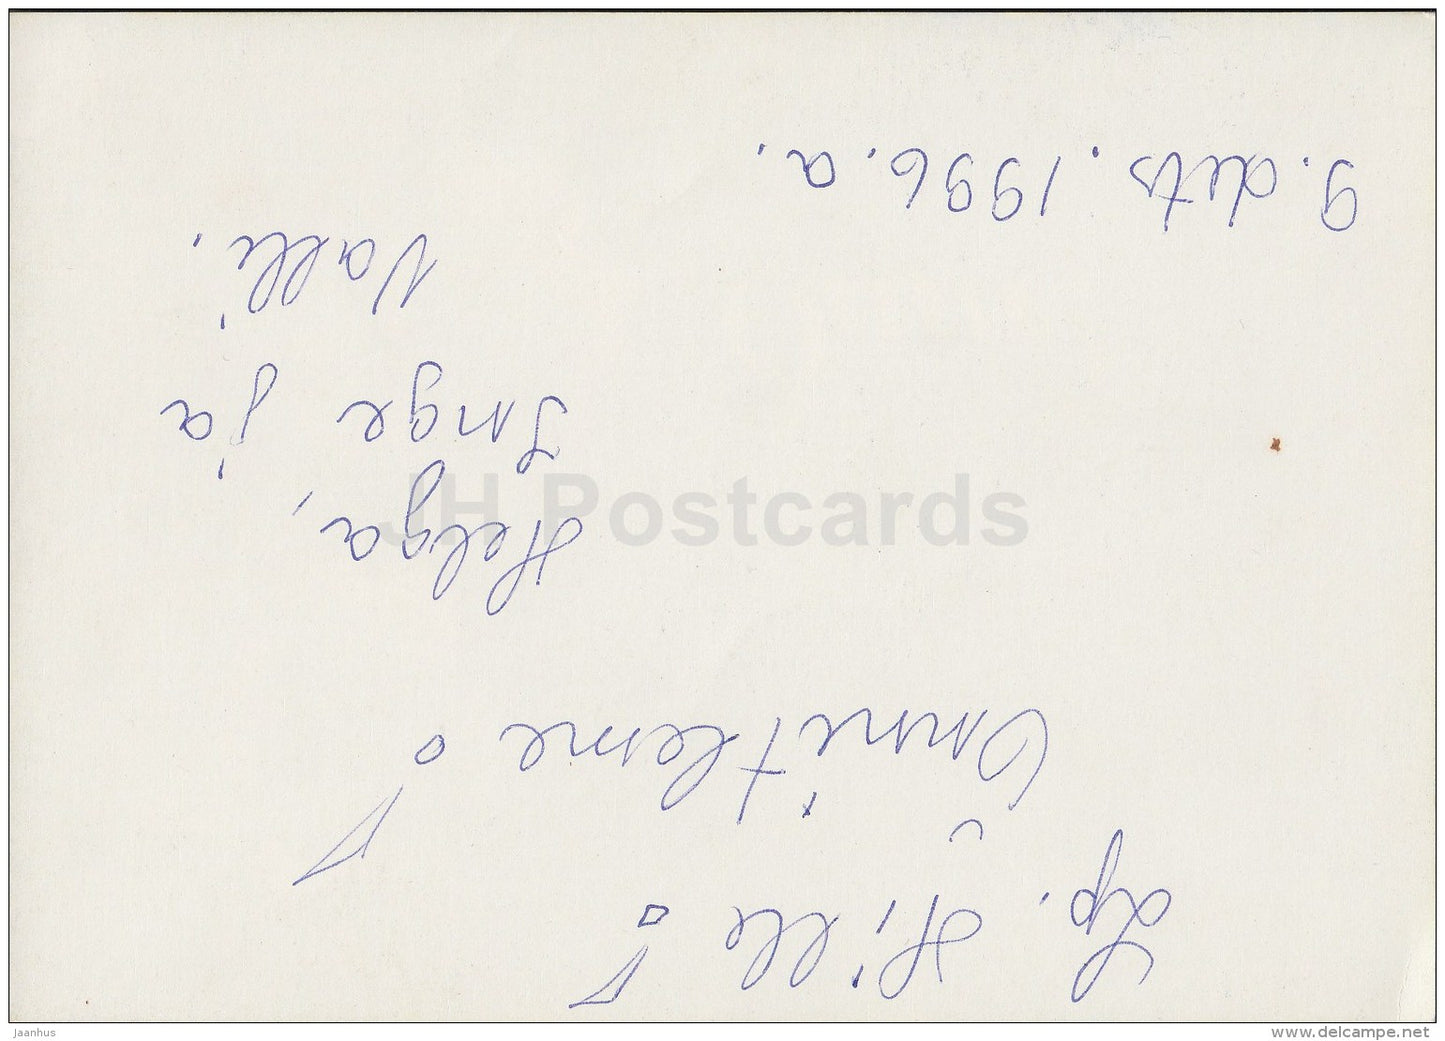 Lp. Hille!
Õnnitleme!
Helga,
Inge ja
Valli.
9. dets. 1996. a.
JH Postcards
jaanhus
www.delcampe.net